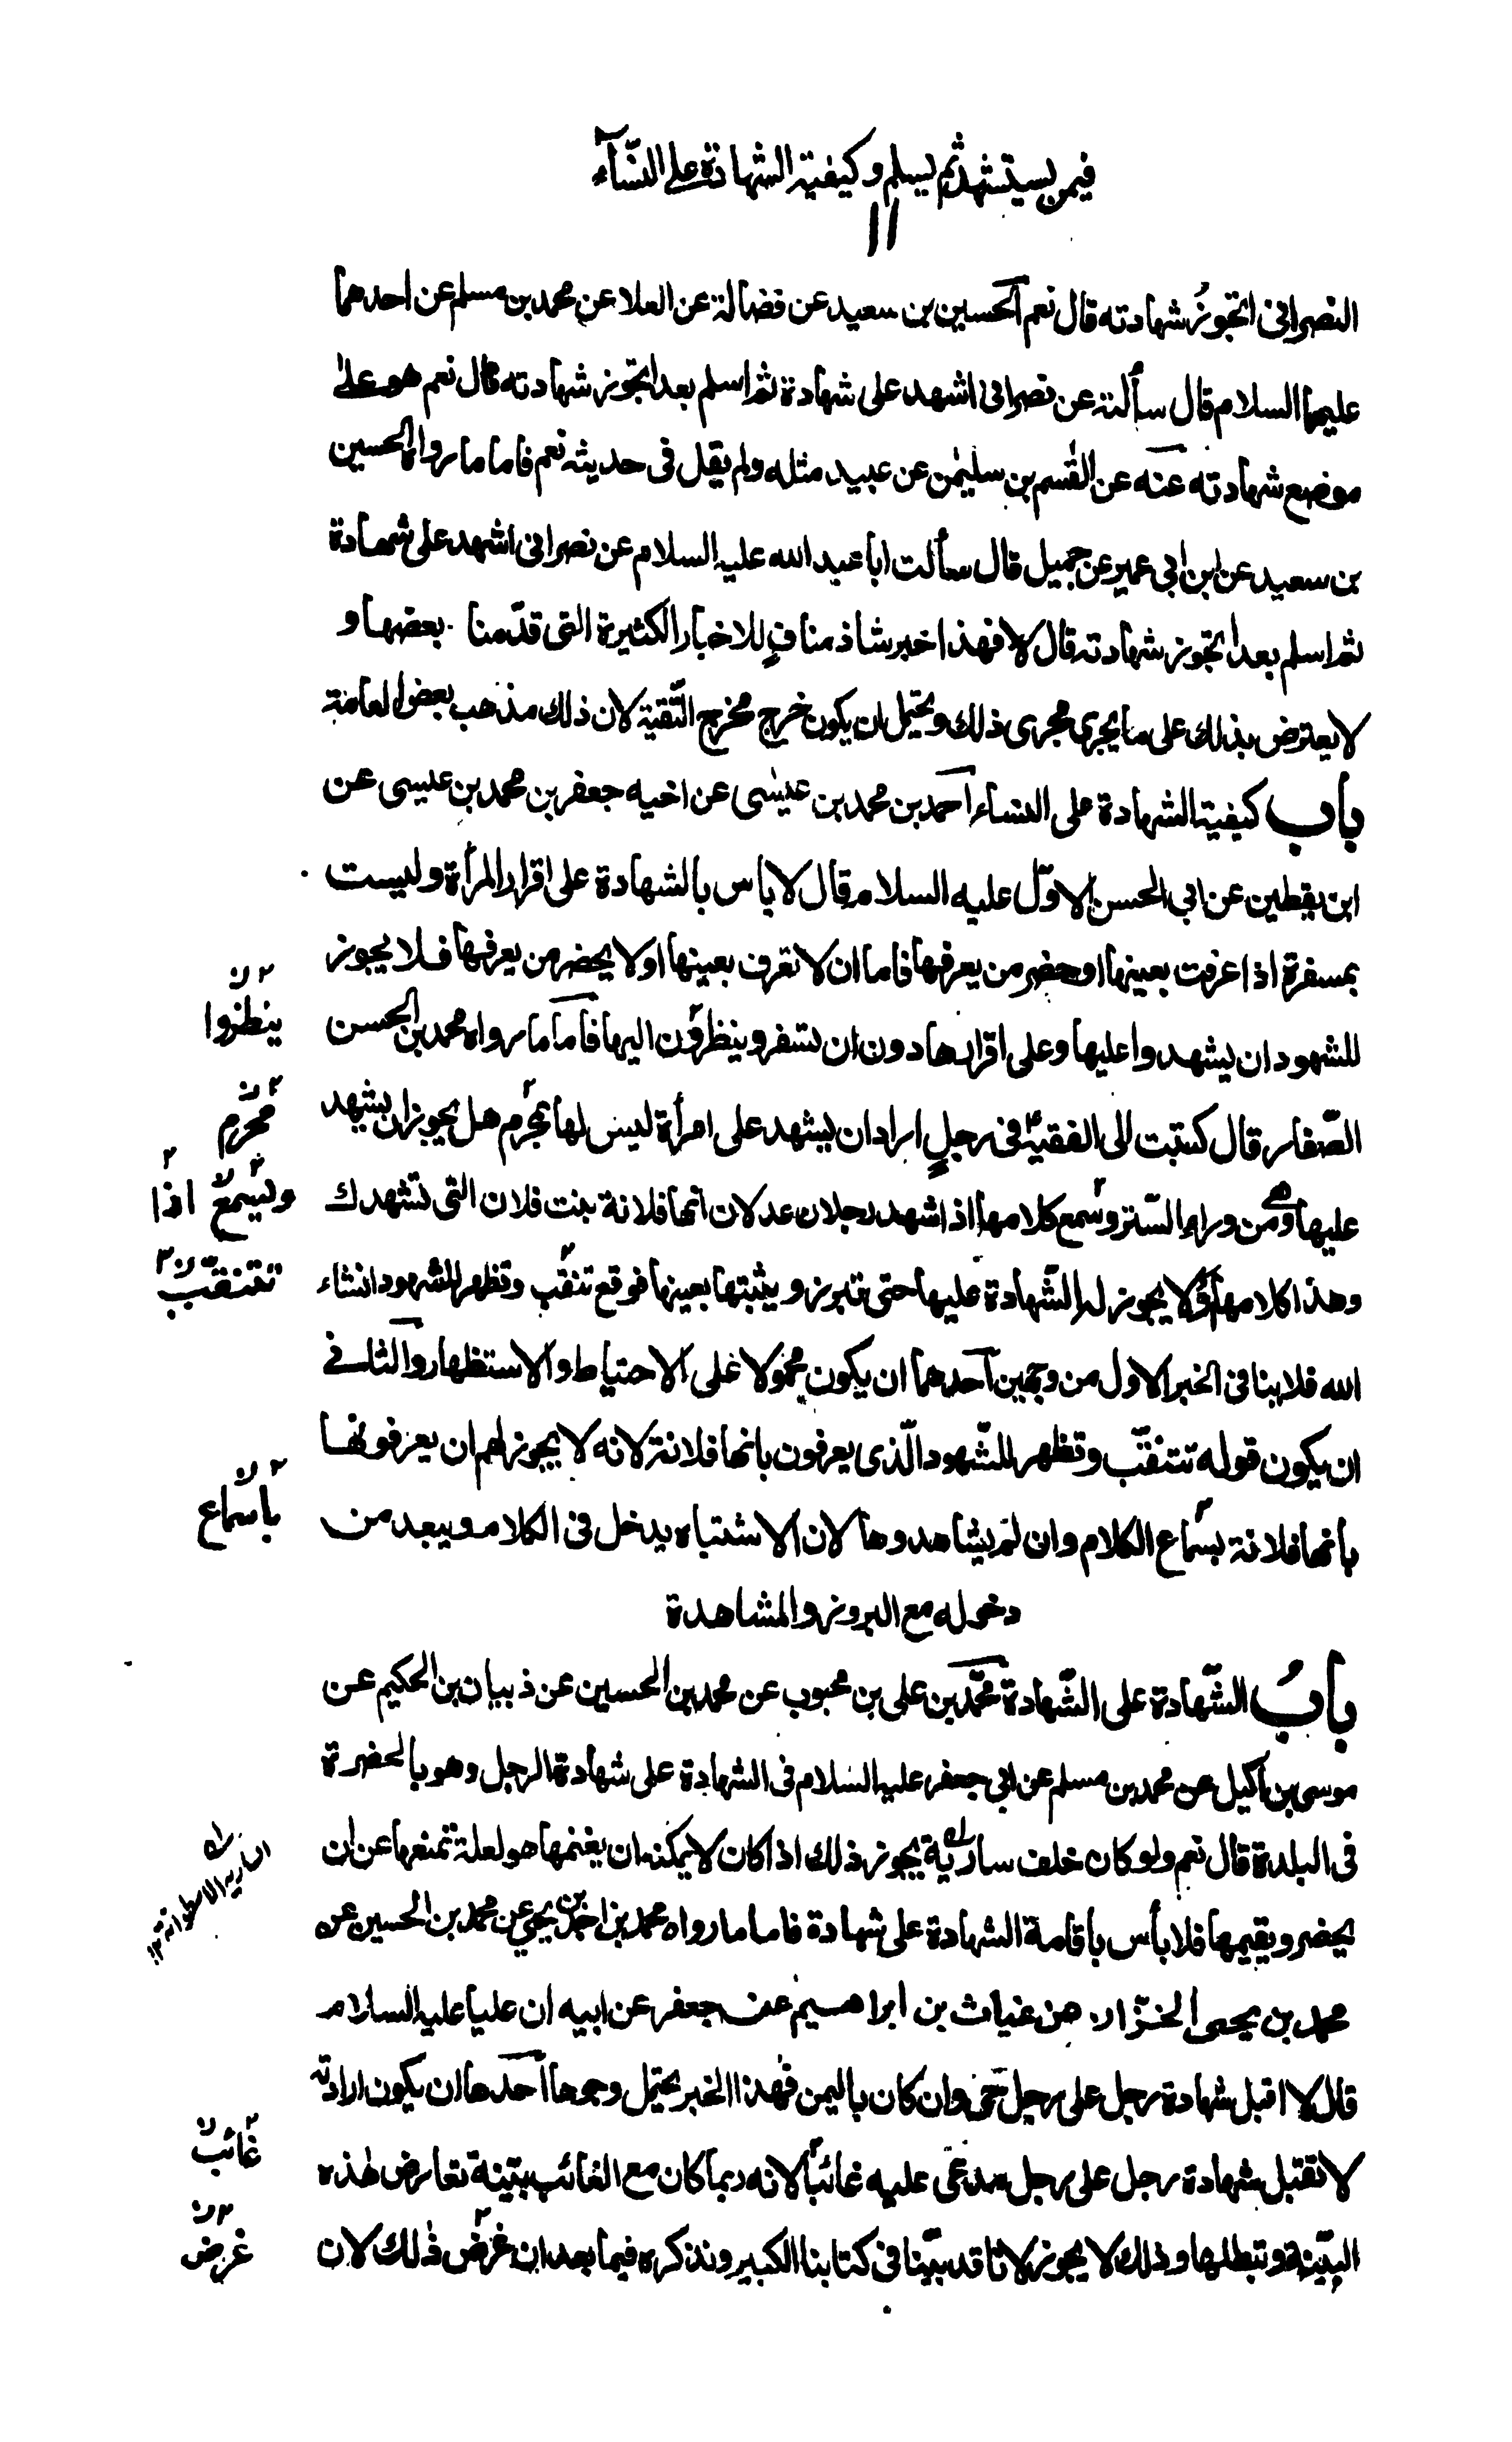 فيمن يستشهد ثم يسلم و كيفية الشهادة على النسآء
١١
النصرانى اتجوز شهادته قال نعم الحسين بن سعيد عن فضالة عن العلا عن محمد بن مسلم عن احدهما
عليهما السلام قال سألته عن نصرانى اشهد على شهادة ثم اسلم بعد اتجوز شهادته قال نعم هو على
موضع شهادته عنه عن القسم بن سليمن عن عبيد مثله ولم يقل فى حديثه نعم فاما ما رواه الحسين
بن سعيد عن ابن ابى عمير عن جميل قال سألت ابا عبد الله عليه السلام عن نصرانى اشهد على شهادة
ثم اسلم بعد اتجوز شهادته قال لا فهذا خبر شاذ منافٍ للاخبار الكثيرة التى قدّمنا بعضها و
لا يعترض بذلك على ما يجرى مجرى ذلك ويحتمل ان يكون خرج مخرج التّقية لان ذلك مذهب بعض العامة
باب كيفية الشهادة على النساء احمد بن محمد بن عيسى عن اخيه جعفر بن محمد بن عيسى عن
ابن يقطين عن ابى الحسن الاوّل عليه السلام قال لا باس بالشهادة على اقرار المرأة وليست
بمسفرة اذا عرفت بعينها او حضر من يعرفها فاما ان لا تعرف بعينها او لا يحضر من يعرفها فلا يجوز
للشهود ان يشهدوا عليها وعلى اقرارها دون ان تسفر وينظرون اليها فاما ما رواه محمد بن الحسن
ينظروا
الصّفار قال كتبت الى الفقيه فى رجلٍ اراد ان يشهد على امرأة ليس لها بمحرم هل يجوز ان يشهد
محرم
عليها وهى من وراء السّتر وسمع كلامها اذ اشهد رجلان عدلان انها فلانة بنت فلان التى تشهدك
ويسمع اذا
وهذا كلامها او لا يجوز له الشّهادة عليها حتى تبرز ويثبتها بعينها فوقع تنقب وتظهر للشهود انشاء
تتنقّب
الله فلا ينافى الخبر الاول من وجهين احدهما ان يكون محمولا على الاحتياط والاستظهار والثانى
ان يكون قوله تتنقّب وتظهر للشّهود الّذى يعرفون بانها فلانة لانه لا يجوز لهم ان يعرفونها
بانها فلانة بسماع الكلام وان لم يشاهدوها لان الاشتباه يدخل فى الكلام ويبعد من
باسماع
دخوله مع البروز والمشاهدة
بابُ الشّهادة على الشّهادة محمّد بن على بن محبوب عن محمد بن الحسين عن ذبيان بن الحكيم عن
موسى بن اكيل عن محمد بن مسلم عن ابى جعفر عليه السلام فى الشهادة على شهادة الرجل وهو بالحضرة
فى البلدة قال نعم ولو كان خلف سارية يجوز ذلك اذا كان لا يمكنه ان يقيمها هو لعلة تمنعها عن ان
السارية الاسطوانة
يحضر ويقيمها فلا بأس باقامة الشهادة على شهادة فاما ما رواه محمد بن احمد بن يحيى عن محمد بن الحسين عن
محمد بن يحيى الخزّاز عن غياث بن ابراهيم عن جعفر عن ابيه ان عليا عليه السلام
قال لا اقبل شهادة رجل على رجل حى وان كان باليمن فهذا الخبر يحتمل وجوها احدها ان يكون ارادته
لا تقبل شهادة رجل على رجل مدعى عليه غائبا لانه ربما كان مع الغائب بيّنة تعارض هذه
غائب
البيّنة وتبطلها وذلك لا يجوز لانا قد بيّنا فى كتابنا الكبير ونذكره فيما بعد ان غرض ذلك لان
غرض